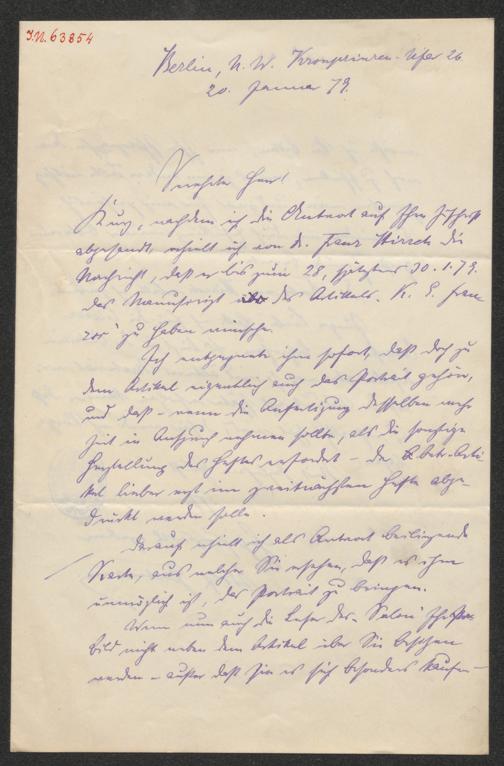 J.N. 63854
Berlin, N. W. Kronprinzen-Ufer 26
20. Januar 79.
Verehrter Herr!
Kurz, nachdem ich die Antwort auf Ihre Zuschrift
abgesandt, erhielt ich von Dr. Franz Hirsch die
Nachricht, daß er bis zum 28, spätestens 30.1.79.
das Manuscript des Artikels „K. E. Fran-
zos" zu haben wünsche.
Ich entgegnete ihm sofort, daß doch zu
dem Artikel eigentlich auch das Porträt gehöre,
und daß – wenn die Anfertigung desselben mehr
Zeit in Anspruch nehmen sollte, als die sonstige
Herstellung des Heftes erfordert – der betr. Arti-
kel lieber erst im zweitnächsten Hefte abge-
druckt werden solle.
Darauf erhielt ich als Antwort beiliegende
Karte, aus welcher Sie ersehen, daß es ihm
unmöglich ist, das Porträt zu bringen.
Wenn nun auch die Leser des „Salon" Ihr
Bild nicht neben dem Artikel über Sie besitzen
werden – außer daß sie es sich besonders kaufen –